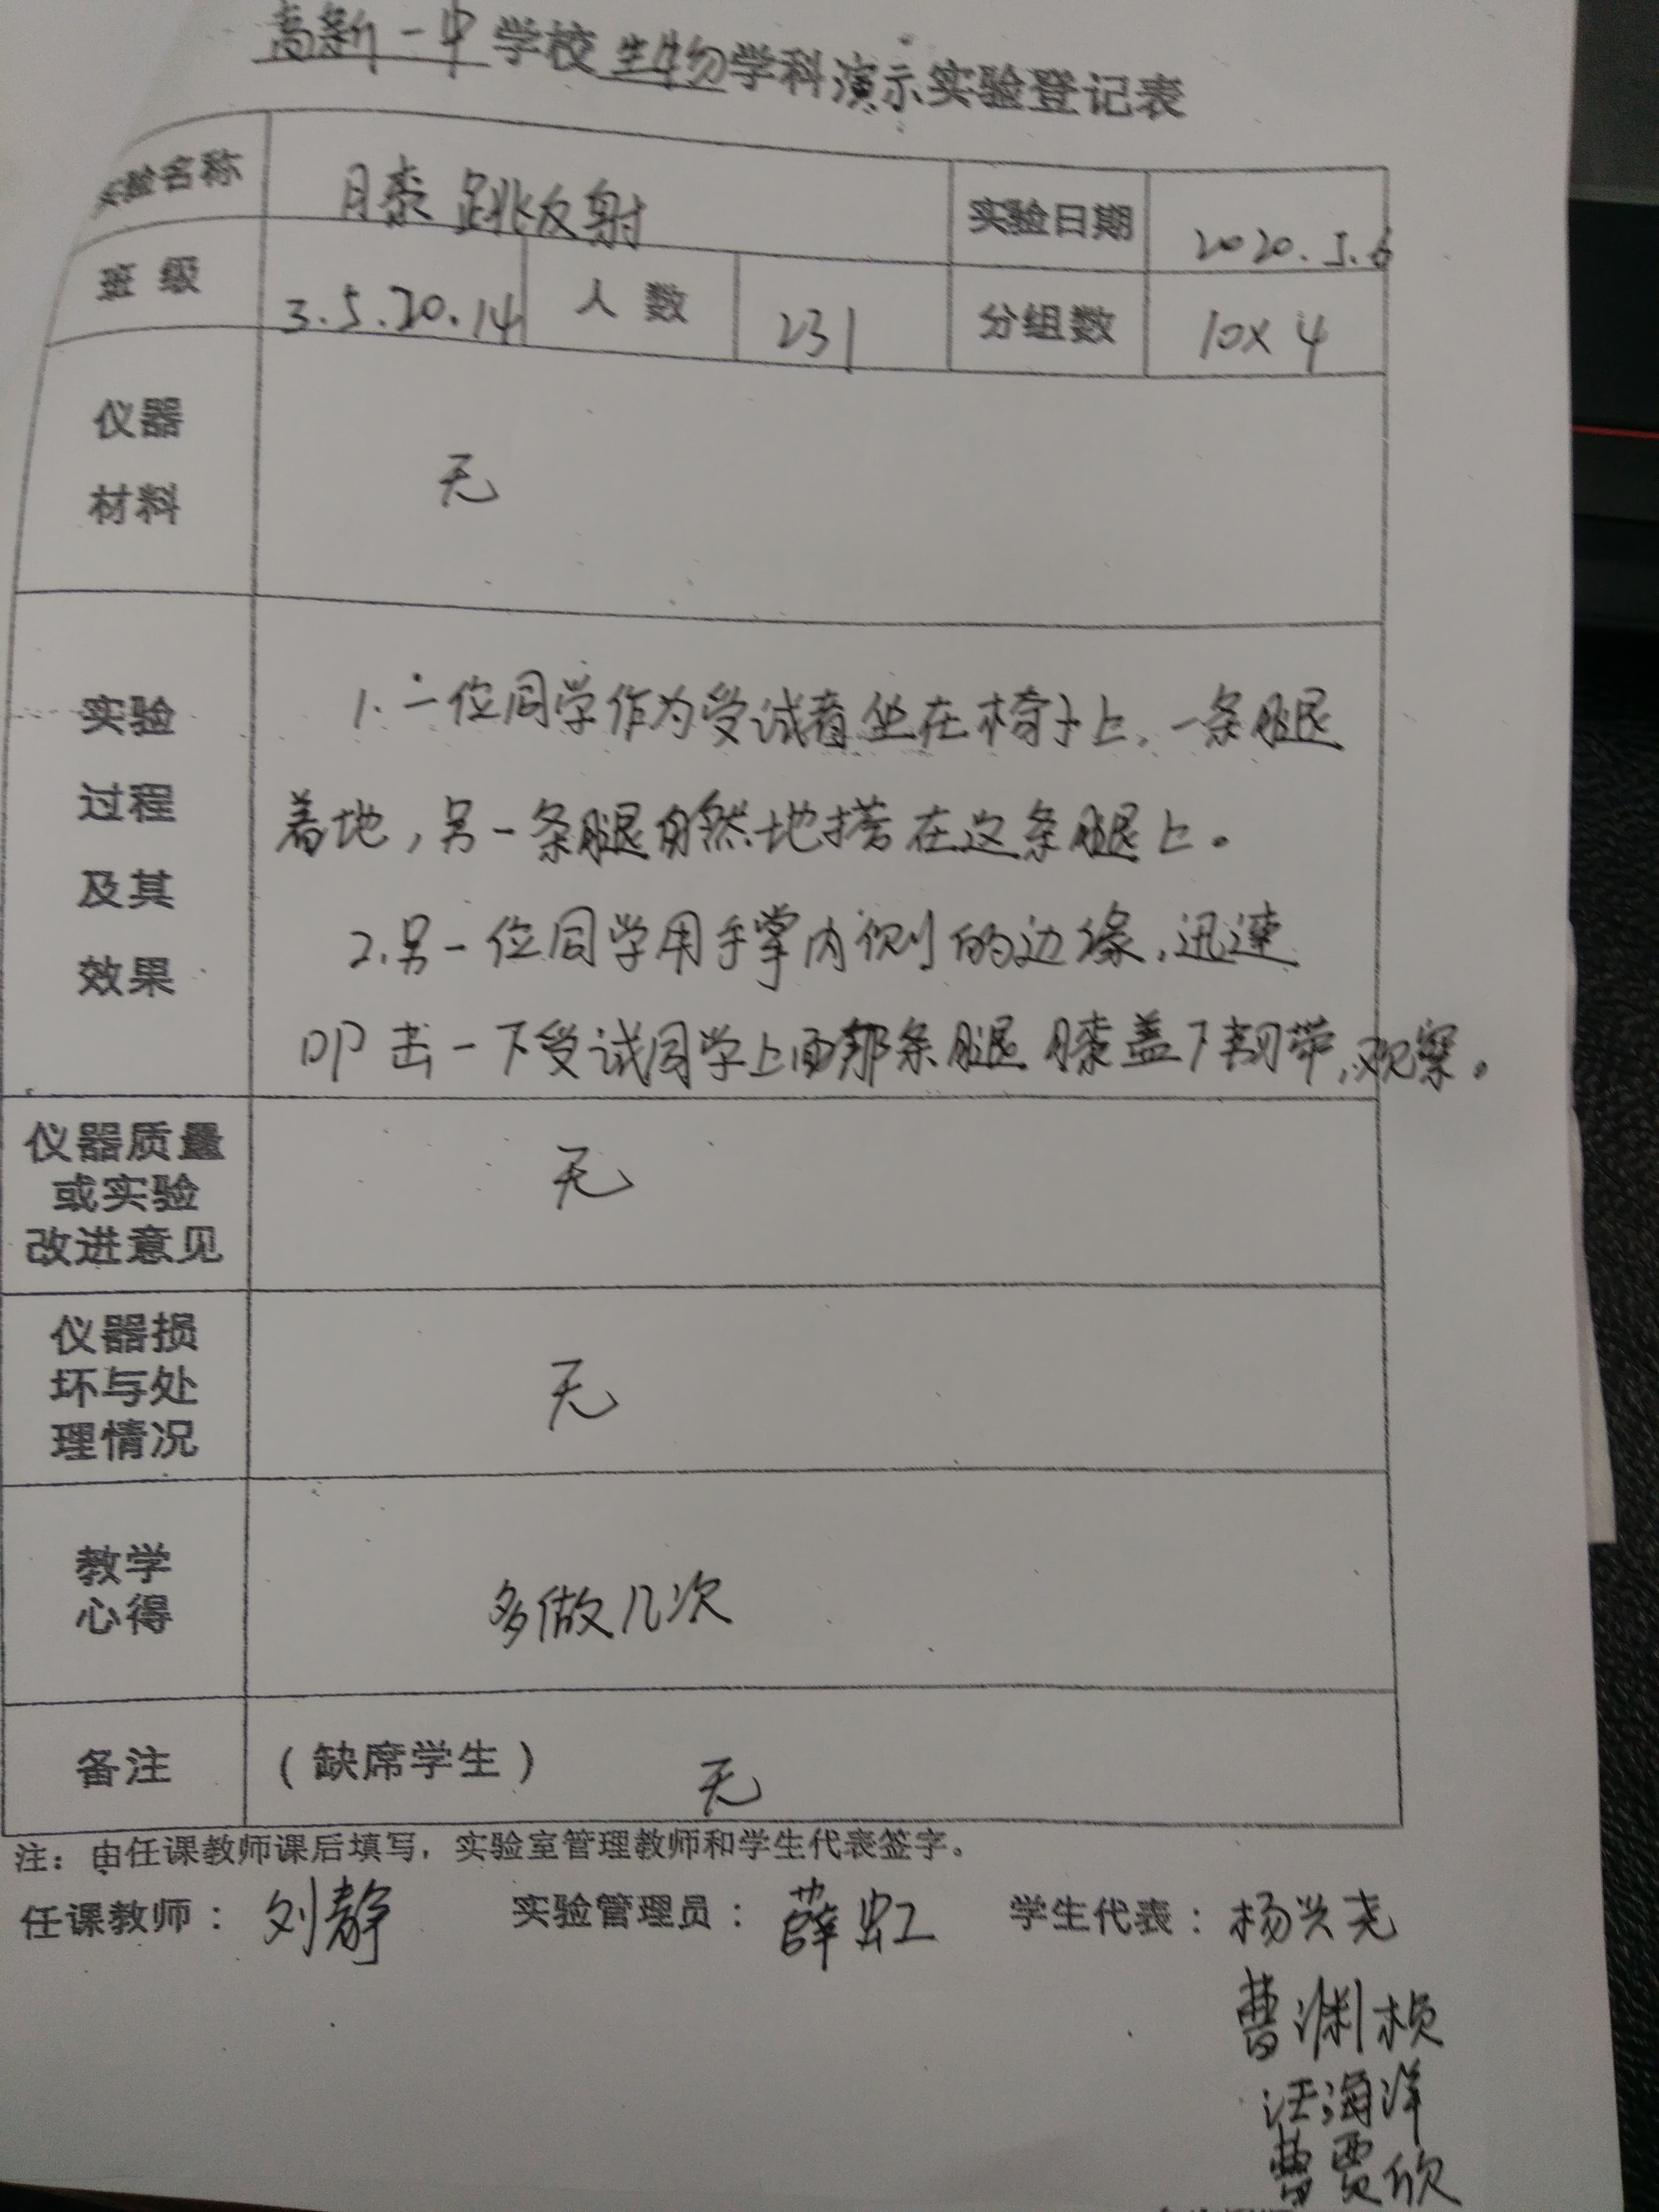 高新一中学校生物学科演示实验登记表
实验名称 膝跳反射 实验日期 2020.5.6
班级 3.5.20.14 人数 231 分组数 10×4
仪器
材料
无
实验
过程
及其
效果
1.一位同学作为受试者坐在椅子上,一条腿
着地,另一条腿自然地搭在这条腿上。
2.另一位同学用手掌内侧的边缘,迅速
叩击一下受试同学上面那条腿膝盖下韧带,观察。
仪器质量
或实验
改进意见
无
仪器损
坏与处
理情况
无
教学
心得
多做几次
备注 (缺席学生) 无
注:由任课教师课后填写,实验室管理教师和学生代表签字。
任课教师:刘静 实验管理员:薛虹 学生代表:杨兴尧
曹渊桢
汪海洋
曹贾欣